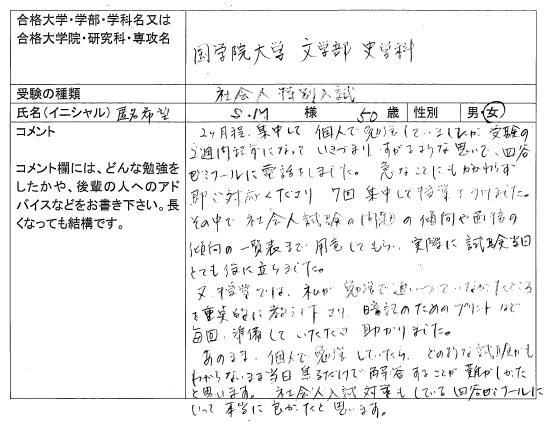 合格大学・学部・学科名又は
合格大学院・研究科・専攻名
国学院大学 文学部 史学科
受験の種類
社会人特別入試
氏名(イニシャル) 匿名希望
S.M 様 50 歳 性別 男・女
コメント
コメント欄には、どんな勉強を
したかや、後輩の人へのアド
バイスなどをお書き下さい。長
くなっても結構です。
2ヶ月程、集中して個人で勉強していましたが、受験の
2週間前になっていきづまり、すがるような思いで、四谷
ゼミナールに電話をしました。急なことにもかかわらず
即ご対応くださり、7回集中して授業をうけました。
その中で社会人試験の問題の傾向や面接の
傾向の一覧表まで用意してもらい、実際に試験当日
とても役に立ちました。
又、授業では、私が勉強で追いついていなかったところ
を重点的に教えて下さり、暗記のためのプリントなど
毎回、準備していただき、助かりました。
あのまま、個人で勉強していたら、どの様な試験かも
わからないまま当日焦るだけで解答することが難しかった
と思います。社会人入試対策もしている四谷ゼミナールに
いって本当に良かったと思います。